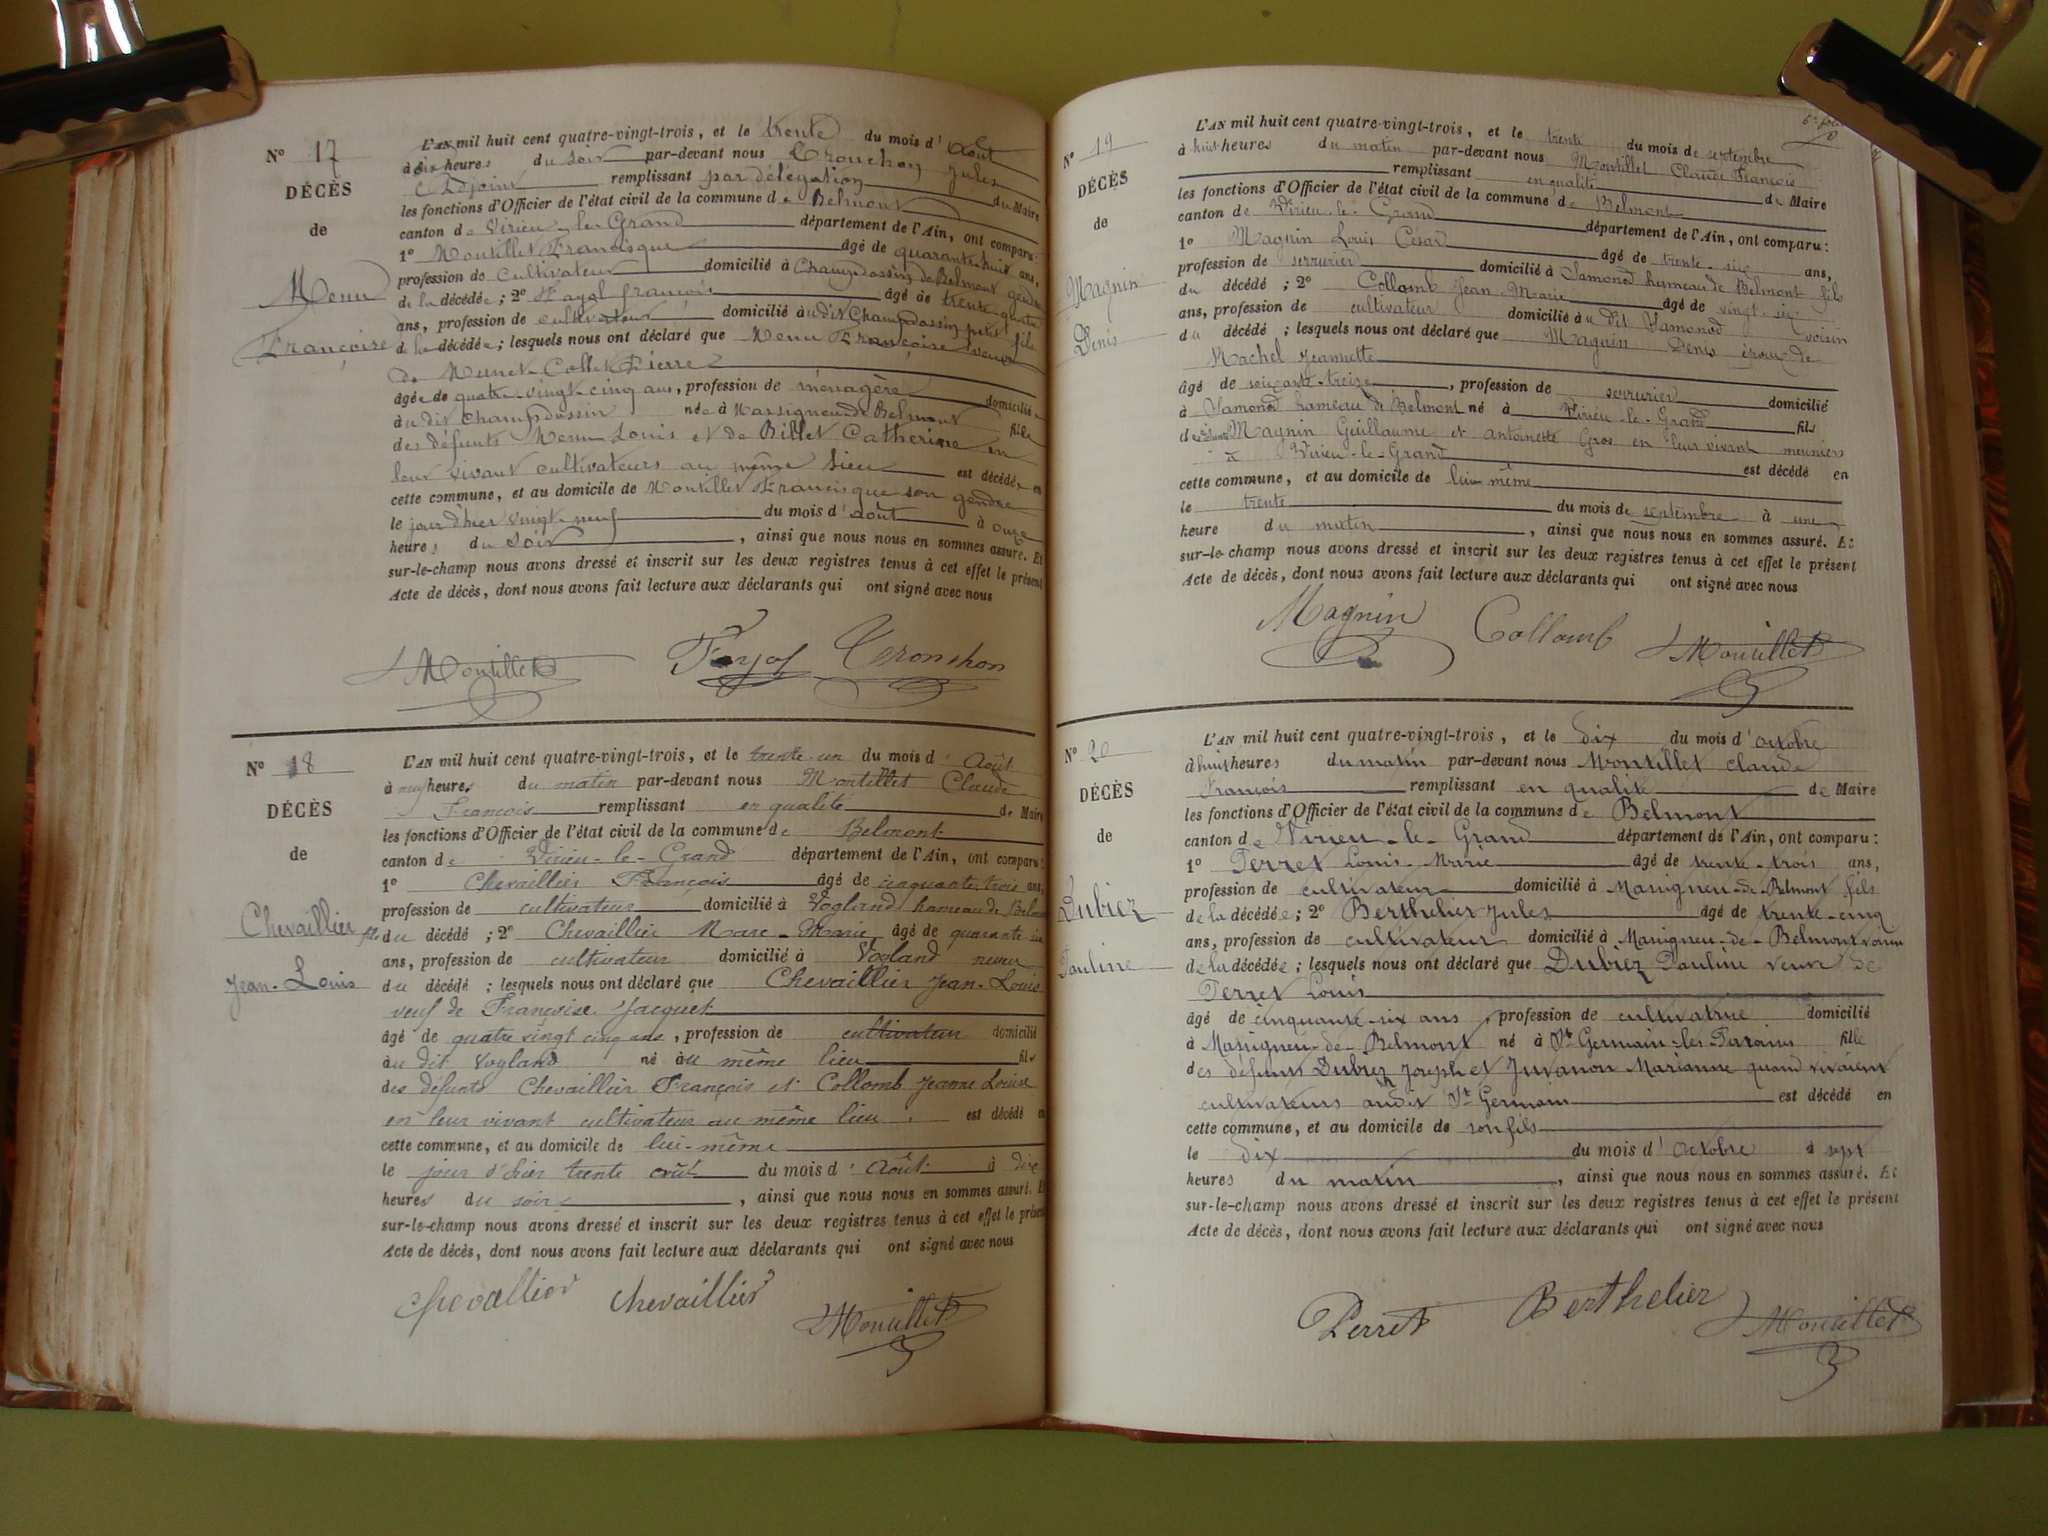 N° 17
DÉCÈS
de
Menu
Françoise
L'AN mil huit cent quatre-vingt-trois, et le trente du mois d'Août
à six heures du soir par-devant nous Tronchon Jules
Adjoint remplissant par délégation du Maire
les fonctions d'Officier de l'état civil de la commune de Belmont
canton de Virieu-le-Grand département de l'Ain, ont comparu:
1° Montillet Francisque âgé de quarante-huit ans,
profession de cultivateur domicilié à Champdossin de Belmont gendre
de la décédée; 2° Fayol françois âgé de trente-quatre
ans, profession de cultivateur domicilié au dit Champdossin petit fils
de la décédée; lesquels nous ont déclaré que Menu Françoise veuve
de Meunet-Collet Pierre
âgée de quatre-vingt-cinq ans, profession de ménagère domiciliée
au dit Champdossin née à Massigneu de Belmont fille
des défunts Menu Louis et de Billet Catherine en
leur vivant cultivateurs au même lieu est décédée en
cette commune, et au domicile de Montillet Francisque son gendre
le jour d'hier vingt-neuf du mois d'août à onze
heures du soir, ainsi que nous nous en sommes assuré. Et
sur-le-champ nous avons dressé et inscrit sur les deux registres tenus à cet effet le présent
Acte de décès, dont nous avons fait lecture aux déclarants qui ont signé avec nous
Montillet Fayol Tronchon
N° 18
DÉCÈS
de
Chevaillier
Jean-Louis
L'AN mil huit cent quatre-vingt-trois, et le trente-un du mois d'Août
à neuf heures du matin par-devant nous Montillet Claude
François remplissant en qualité de Maire
les fonctions d'Officier de l'état civil de la commune de Belmont
canton de Virieu-le-Grand département de l'Ain, ont comparu:
1° Chevaillier François âgé de cinquante-trois ans,
profession de cultivateur domicilié à Vogland hameau de Belmont
fils du décédé; 2° Chevaillier Marc-Marie âgé de quarante-six
ans, profession de cultivateur domicilié à Vogland neveu
du décédé; lesquels nous ont déclaré que Chevaillier Jean-Louis
veuf de Françoise Jacquet
âgé de quatre vingt cinq ans, profession de cultivateur domicilié
au dit Vogland né au même lieu fils
des défunts Chevaillier François et Collomb Jeanne Louise
en leur vivant cultivateur au même lieu est décédé en
cette commune, et au domicile de lui-même
le jour d'hier trente août du mois d'Août à dix
heures du soir, ainsi que nous nous en sommes assuré. Et
sur-le-champ nous avons dressé et inscrit sur les deux registres tenus à cet effet le présent
Acte de décès, dont nous avons fait lecture aux déclarants qui ont signé avec nous
Chevallier Chevaillier Montillet
N° 19
DÉCÈS
de
Magnin
Denis
L'AN mil huit cent quatre-vingt-trois, et le trente du mois de septembre
à huit heures du matin par-devant nous Montillet Claude François
remplissant en qualité de Maire
les fonctions d'Officier de l'état civil de la commune de Belmont
canton de Virieu-le-Grand département de l'Ain, ont comparu:
1° Magnin Louis César âgé de trente-six ans,
profession de serrurier domicilié à Samonod hameau de Belmont fils
du décédé; 2° Collomb Jean Marie âgé de vingt-six
ans, profession de cultivateur domicilié au dit Samonod voisin
du décédé; lesquels nous ont déclaré que Magnin Denis époux de
Machel Jeannette
âgé de soixante-treize, profession de serrurier domicilié
à Samonod hameau de Belmont né à Virieu-le-Grand fils
des défunts Magnin Guillaume et antoinette Gros en leur vivant meuniers
à Virieu-le-Grand est décédé en
cette commune, et au domicile de lui-même
le trente du mois de septembre à une
heure du matin, ainsi que nous nous en sommes assuré. Et
sur-le-champ nous avons dressé et inscrit sur les deux registres tenus à cet effet le présent
Acte de décès, dont nous avons fait lecture aux déclarants qui ont signé avec nous
Magnin Collomb Montillet
N° 20
DÉCÈS
de
Dubiez
Pauline
L'AN mil huit cent quatre-vingt-trois, et le dix du mois d'octobre
à huit heures du matin par-devant nous Montillet claude
François remplissant en qualité de Maire
les fonctions d'Officier de l'état civil de la commune de Belmont
canton de Virieu-le-Grand département de l'Ain, ont comparu:
1° Perret Louis-Marie âgé de trente-trois ans,
profession de cultivateur domicilié à Massigneu-de-Belmont fils
de la décédée; 2° Berthelier Jules âgé de trente-cinq
ans, profession de cultivateur domicilié à Massigneu-de-Belmont voisin
de la décédée; lesquels nous ont déclaré que Dubiez Pauline veuve de
Perret Louis
âgé de cinquante-six ans, profession de cultivatrice domicilié
à Massigneu-de-Belmont né à St Germain-les-Paroisses fille
des défunts Dubiez Joseph et Juvanon Marianne quand vivaient
cultivateurs audit St Germain est décédé en
cette commune, et au domicile de son fils
le dix du mois d'octobre à sept
heures du matin, ainsi que nous nous en sommes assuré. Et
sur-le-champ nous avons dressé et inscrit sur les deux registres tenus à cet effet le présent
Acte de décès, dont nous avons fait lecture aux déclarants qui ont signé avec nous
Perret Berthelier Montillet